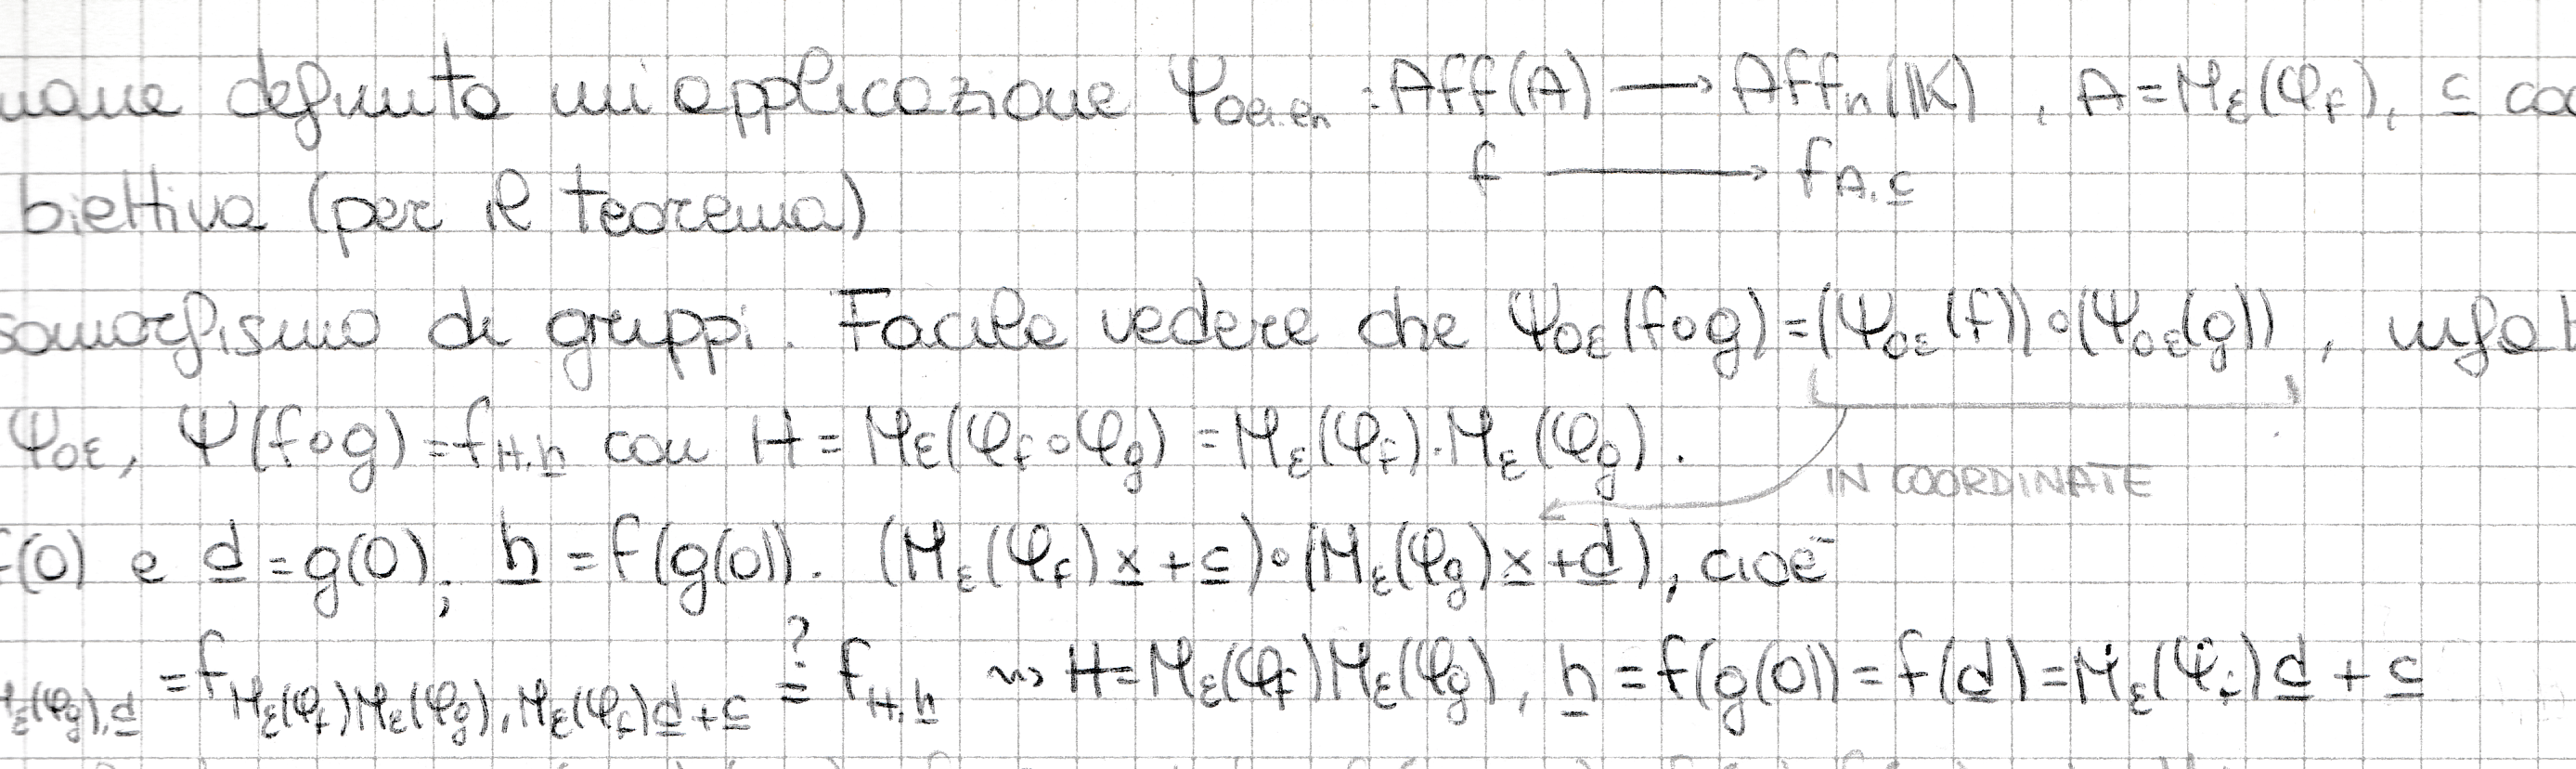 definita un'applicazione Ψ_{Oe₁..eₙ} : Aff(A) ⟶ Affₙ(𝕂) , A = M_ε(φ_f), c̲
f ⟶ f_{A,c̲}
biettiva (per il teorema)
somorfismo di gruppi. Facile vedere che Ψ_{Oε}(f∘g) = (Ψ_{Oε}(f))∘(Ψ_{Oε}(g)) , infat
Ψ_{Oε}, Ψ(f∘g) = f_{H,h̲} con H = M_ε(φ_f∘φ_g) = M_ε(φ_f)·M_ε(φ_g).
IN COORDINATE
f(O) e d̲ = g(O); h̲ = f(g(O)). (M_ε(φ_f)x̲ + c̲)∘(M_ε(φ_g)x̲ + d̲), cioè
M_ε(φ_g),d̲ = f_{M_ε(φ_f)M_ε(φ_g), M_ε(φ_f)d̲+c̲} ≟ f_{H,h̲} ⇝ H = M_ε(φ_f)M_ε(φ_g), h̲ = f(g(O)) = f(d̲) = M_ε(φ_f)d̲ + c̲